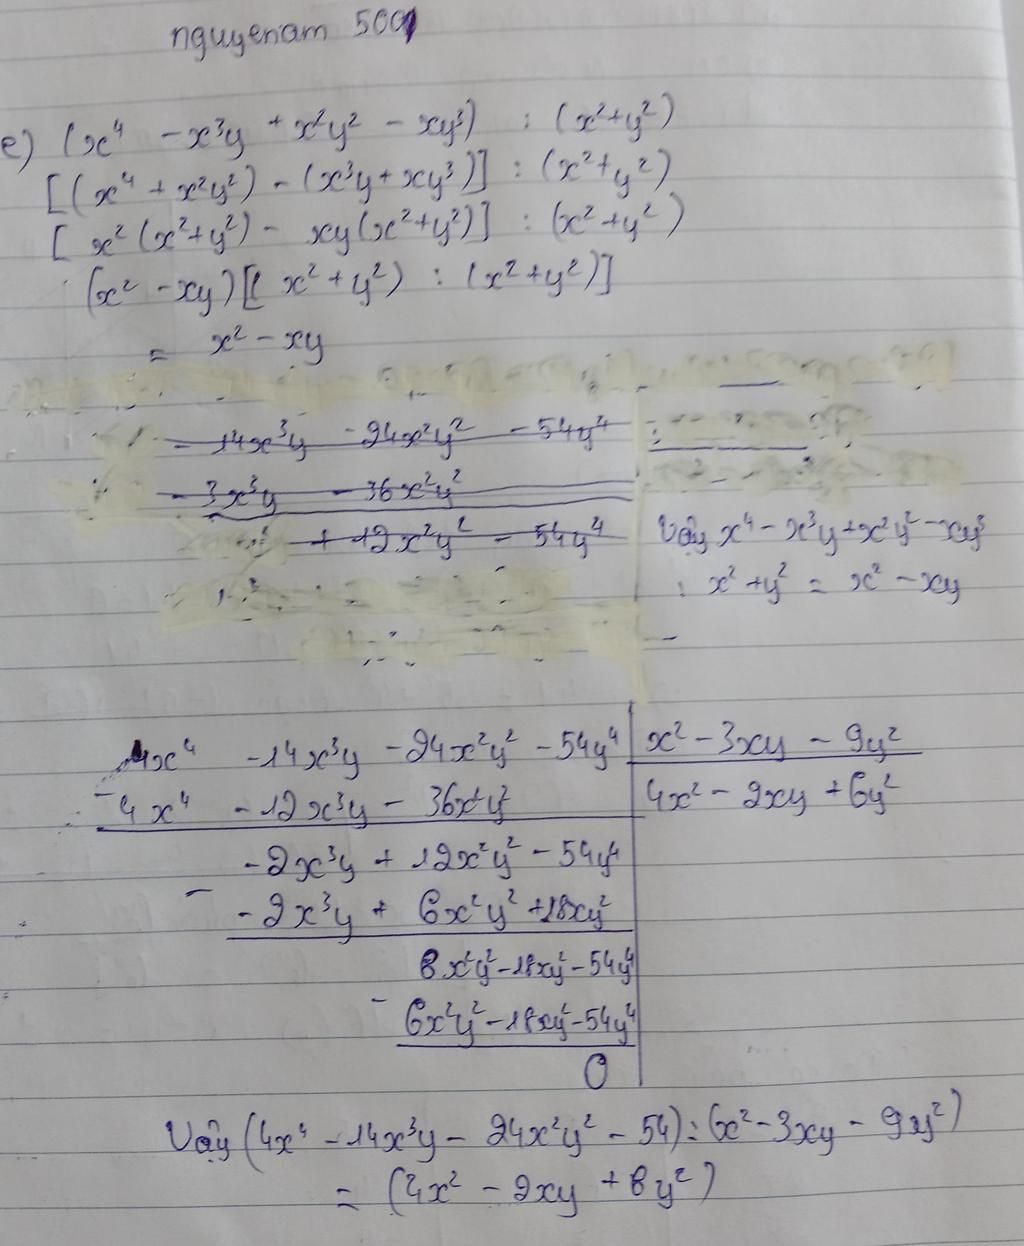 nguyenam 5001
e) (x⁴ - x³y + x²y² - xy³) : (x²+y²)
[(x⁴ + x²y²) - (x³y + xy³)] : (x²+y²)
[x²(x²+y²) - xy(x²+y²)] : (x²+y²)
(x² - xy)[(x²+y²) : (x²+y²)]
= x² - xy
- 14x³y - 24x²y² - 54y⁴ :
- 3x³y - 36x²y²
+ 12x²y² - 54y⁴
Vậy x⁴ - x³y + x²y² - xy³
: x² + y² = x² - xy
4x⁴ - 14x³y - 24x²y² - 54y⁴ | x² - 3xy - 9y²
- 4x⁴ - 12x³y - 36x²y² | 4x² - 2xy + 6y²
- 2x³y + 12x²y² - 54y⁴
- - 2x³y + 6x²y² + 18xy²
6x²y² - 18xy² - 54y⁴
- 6x²y² - 18xy² - 54y⁴
0
Vậy (4x⁴ - 14x³y - 24x²y² - 54) : (x² - 3xy - 9y²)
= (4x² - 2xy + 6y²)